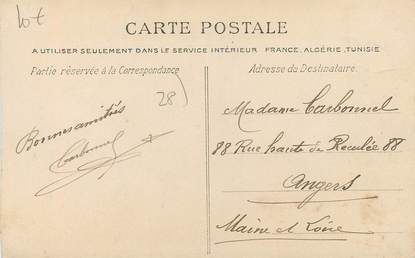 lot
CARTE POSTALE
A UTILISER SEULEMENT DANS LE SERVICE INTÉRIEUR FRANCE, ALGÉRIE, TUNISIE
Partie réservée à la Correspondance
Adresse du Destinataire.
28
Bonnes amitiés
Carbonnel
Madame Carbonnel
88 Rue haute de Reculée 88
Angers
Maine et Loire